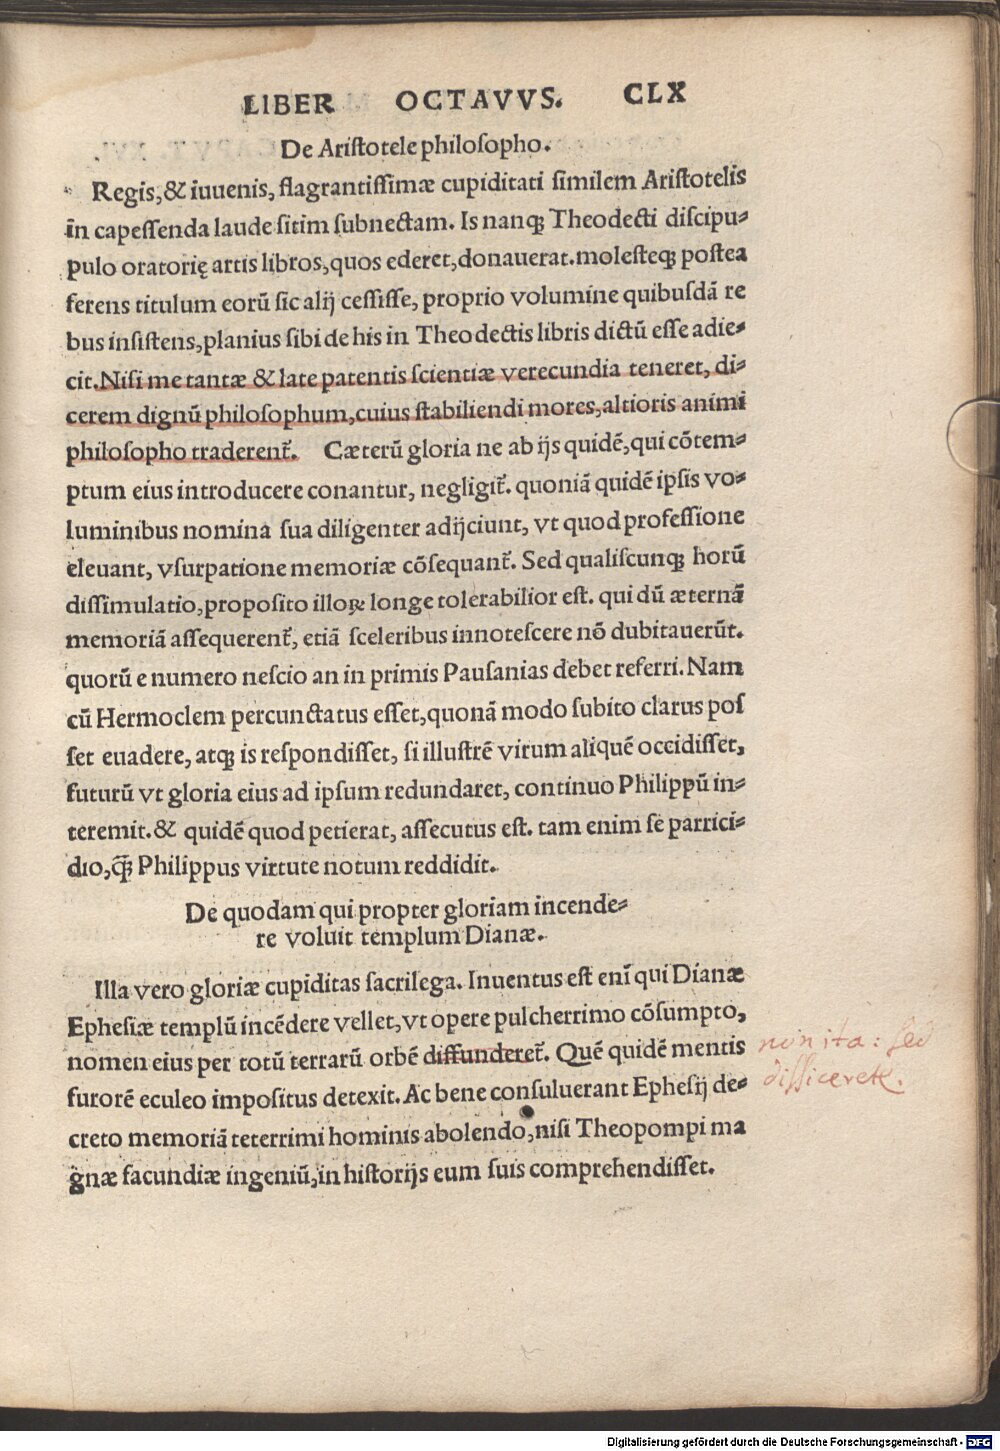 LIBER OCTAVVS. CLX
De Aristotele philosopho.
Regis, & iuuenis, flagrantissimæ cupiditati similem Aristotelis
in capessenda laude sitim subnectam. Is nanqꝫ Theodecti discipu-
pulo oratorię artis libros, quos ederet, donauerat. molesteqꝫ postea
ferens titulum eorũ sic alij cessisse, proprio volumine quibusdã re
bus insistens, planius sibi de his in Theodectis libris dictũ esse adie-
cit. Nisi me tantæ & late patentis scientiæ verecundia teneret, di-
cerem dignũ philosophum, cuius stabiliendi mores, altioris animi
philosopho traderent᷑. Cæterũ gloria ne ab ijs quidẽ, qui cõtem-
ptum eius introducere conantur, negligit᷑. quoniã quidẽ ipsis vo-
luminibus nomina sua diligenter adijciunt, vt quod professione
eleuant, vsurpatione memoriæ cõsequant᷑. Sed qualiscunqꝫ horũ
dissimulatio, proposito illoꝝ longe tolerabilior est. qui dũ æternã
memoriã assequerent᷑, etiã sceleribus innotescere nõ dubitauerũt.
quorũ e numero nescio an in primis Pausanias debet referri. Nam
cũ Hermoclem percunctatus esset, quonã modo subito clarus pos
set euadere, atqꝫ is respondisset, si illustrẽ virum aliquẽ occidisset,
futurũ vt gloria eius ad ipsum redundaret, continuo Philippũ in-
teremit. & quidẽ quod petierat, assecutus est. tam enim se parrici-
dio, q̃ꝫ Philippus virtute notum reddidit.
De quodam qui propter gloriam incende-
re voluit templum Dianæ.
Illa vero gloriæ cupiditas sacrilega. Inuentus est enĩ qui Dianæ
Ephesiæ templũ incẽdere vellet, vt opere pulcherrimo cõsumpto,
nomen eius per totũ terrarũ orbẽ diffunderet᷑. Quẽ quidẽ mentis
non ita: sed
disijceret᷑.
furorẽ eculeo impositus detexit. Ac bene consuluerant Ephesij de-
creto memoriã teterrimi hominis abolendo, nisi Theopompi ma
gnæ facundiæ ingeniũ, in historijs eum suis comprehendisset.
Digitalisierung gefördert durch die Deutsche Forschungsgemeinschaft - DFG